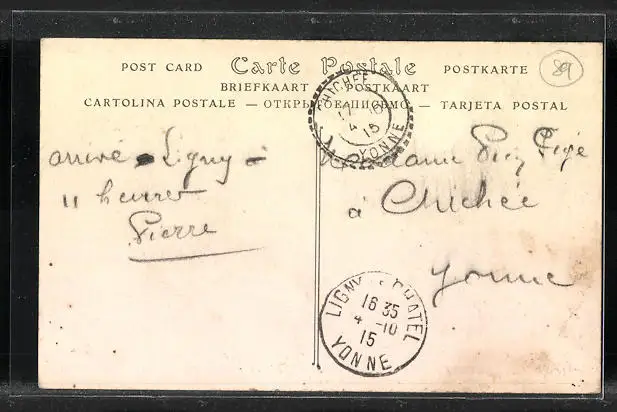 POST CARD Carte Postale POSTKARTE
BRIEFKAART POSTKAART
CARTOLINA POSTALE — ОТКРЫТОЕ ПИСЬМО — TARJETA POSTAL
89
CHICHÉE
4 10
15
YONNE
arrivé Ligny à
11 heures
Pierre
Madame
à Chichée
Yonne
LIGNY CHATEL
16 35
4 -10
15
YONNE